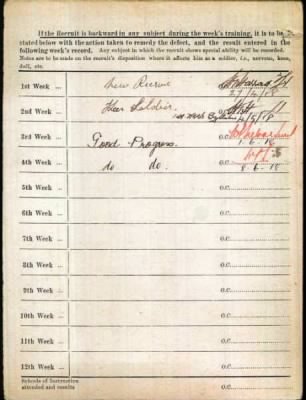 If the Recruit is backward in any subject during the week's training, it is to be
stated below with the action taken to remedy the defect, and the result entered in the
following week's record. Any subject in which the recruit shows special ability will be recorded.
Notes are to be made on the recruit's disposition where it affects him as a soldier, i.e., nervous, keen,
dull, etc.
1st Week ... New Recruit
27/4/18
2nd Week ... Keen Soldier. O.C.
4/5/18
3rd Week ... Good Progress. O.C.
1.6.18
4th Week ... do do. O.C.
8.6.18
5th Week ... O.C.
6th Week ... O.C.
7th Week ... O.C.
8th Week ... O.C.
9th Week ... O.C.
10th Week ... O.C.
11th Week ... O.C.
12th Week ... O.C.
Schools of Instruction
attended and results